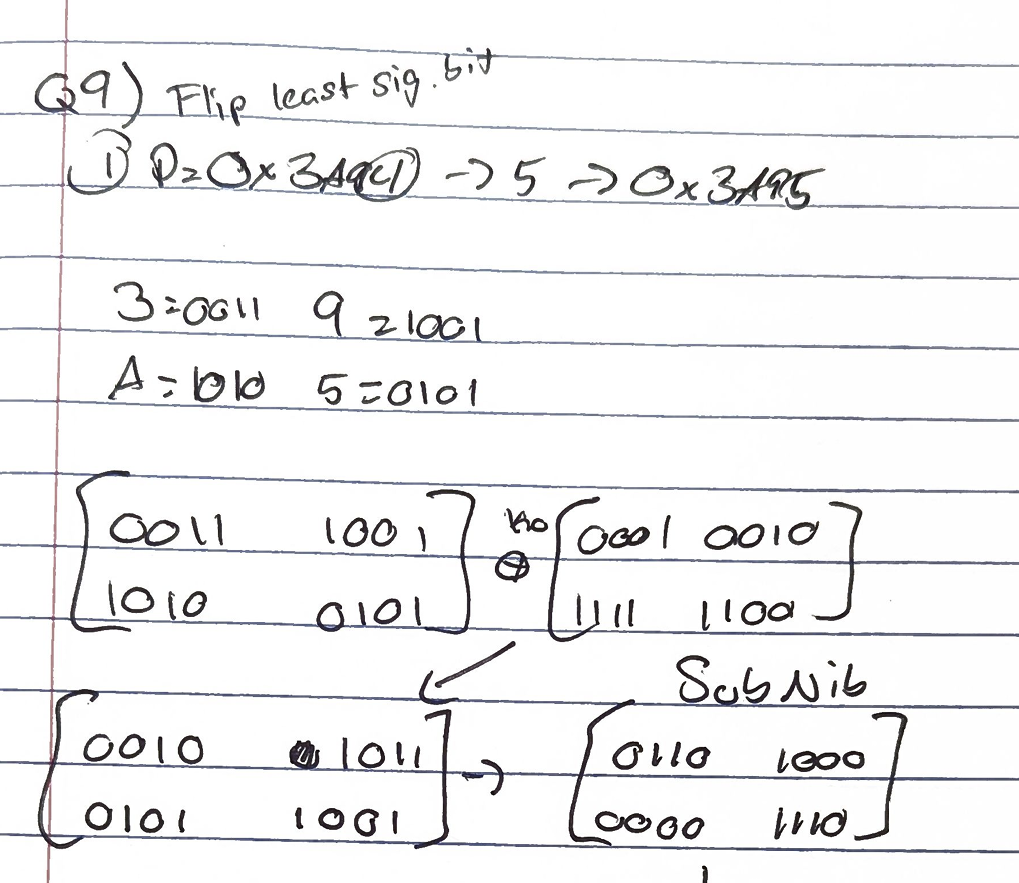 Q9) Flip least sig. bit
① P=0x3A94 → 5 → 0x3A95
3=0011 9=1001
A=1010 5=0101
[0011 1001 K0 [0001 0010]
1010 0101] ⊕ 1111 1100]
Sub Nib
[0010 1011] → [0110 1000]
0101 1001 0000 1110